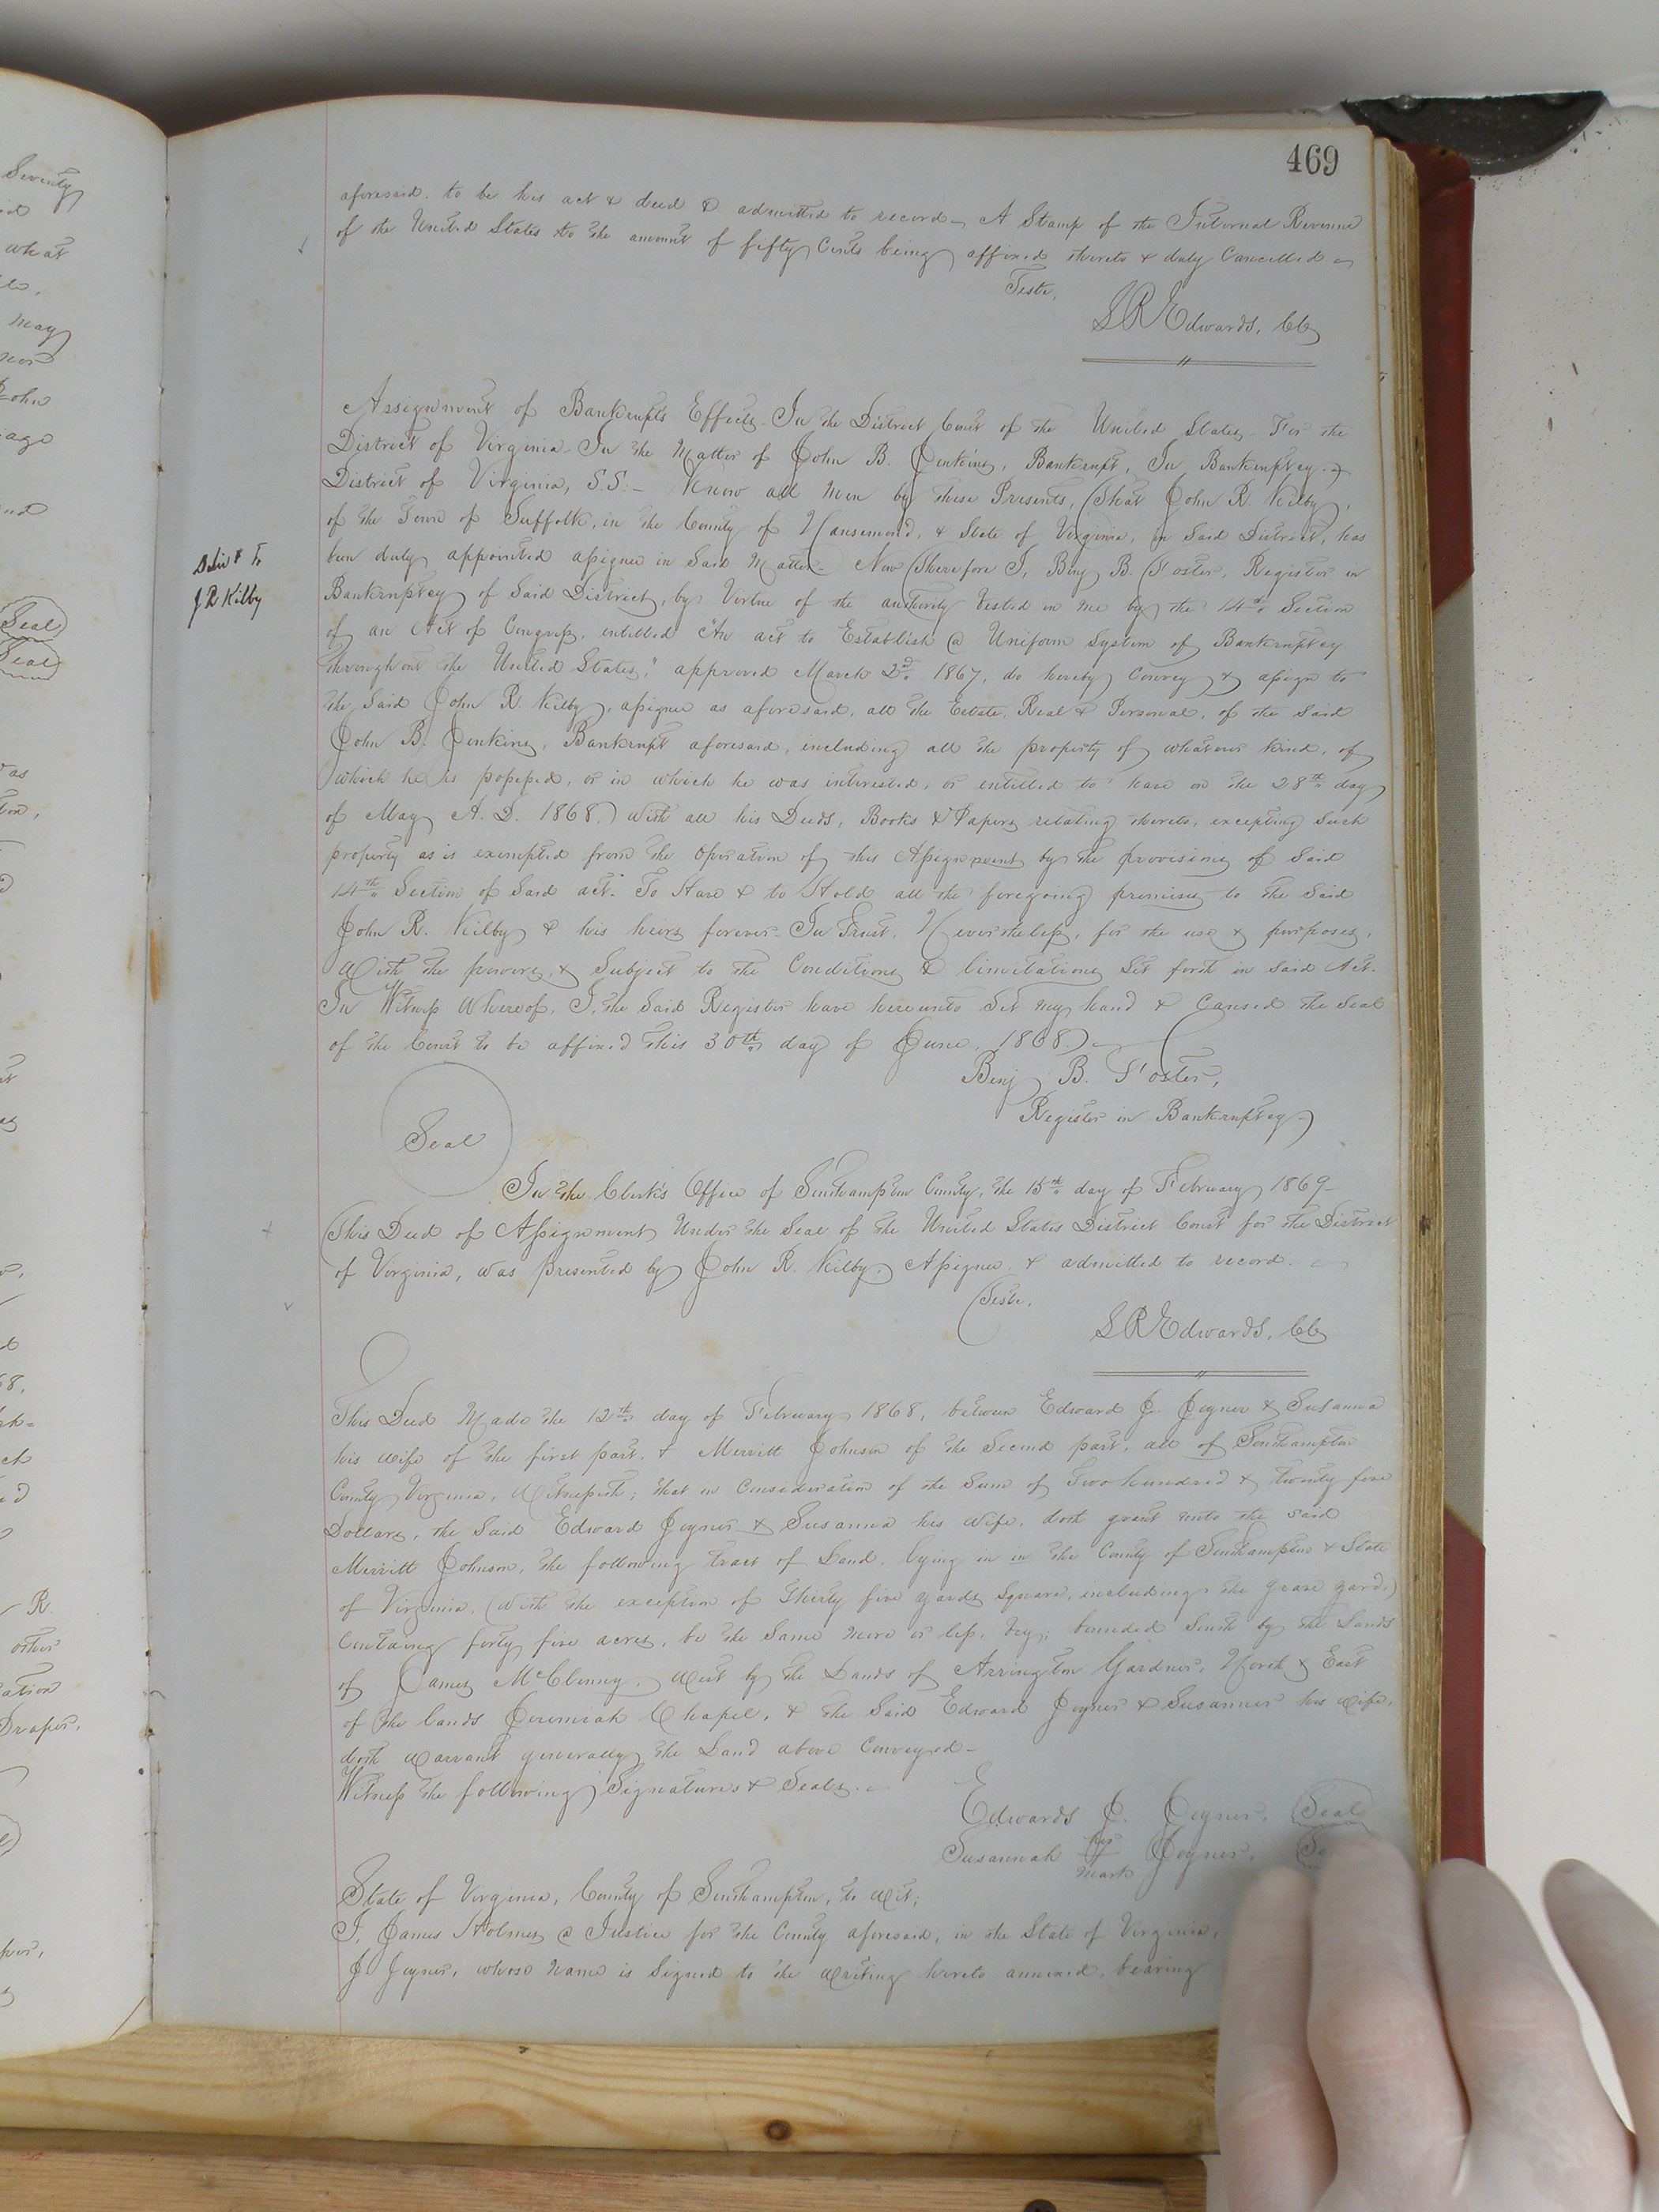 469
aforesaid. to be his act & deed & admitted to record - A Stamp of the Internal Revenue
of the United States to the amount of fifty Cents being affixed thereto & duly Cancelled -
Teste,
LREdwards, Clk
Assignment of Bankrupt's Effects - In the District Court of the United States - For the
District of Virginia - In the Matter of John B. Jenkins, Bankrupt, In Bankruptcy. -
District of Virginia, S.S: - Know all Men by these Presents, That John R. Kilby,
of the Town of Suffolk, in the County of Nansemond, & State of Virginia, in Said District, has
been duly appointed assignee in Said Matter - Now Therefore I, Benj B. Foster, Register in
Bankruptcy of Said District, by Virtue of the authority Vested in Me by the 14th Section
of an Act of Congress, entitled "An act to Establish a Uniform System of Bankruptcy
throughout the United States," approved March 2nd 1867, do hereby Convey & assign to
the Said John R. Kilby, assignee as aforesaid, all the Estate, Real & Personal, of the Said
John B. Jenkins, Bankrupt aforesaid, including all the property of whatever kind, of
which he is possessed, or in which he was interested, or entitled to have on the 28th day
of May A. D. 1868.) With all his Deeds, Books & Papers relating thereto, excepting Such
property as is exempted from the Operation of this Assignment by the provisions of Said
14th Section of Said act. To Have & to Hold all the foregoing premises to the Said
John R. Kilby & his heirs forever - In Trust, Nevertheless, for the use & purposes,
With the powers, & Subject to the Conditions & limitations Set forth in Said Act.
In Witness Whereof, I, the Said Register have hereunto Set my hand & Caused the Seal
of the Court to be affixed this 30th day of June, 1868.) -
Benj B. Foster,
Register in Bankruptcy.
Seal
Deliv'd to
J R Kilby
In the Clerk's Office of Southampton County, the 15th day of February 1869 -
This Deed of Assignment Under the Seal of the United States District Court for the District
of Virginia, was presented by John R. Kilby, Assignee, & admitted to record.
Teste,
LREdwards, Clk
This Deed Made the 12th day of February 1868, between Edward J. Joyner & Susanna
his wife of the first part, & Merritt Johnson of the Second part, all of Southampton
County Virginia, Witnesseth; that in Consideration of the Sum of Two hundred & twenty five
Dollars, the Said Edward Joyner & Susanna his wife, doth grant unto the said
Merritt Johnson, the following tract of Land, lying in in the County of Southampton & State
of Virginia, (with the exception of Thirty five yards Square, including the grave yard,)
Containing forty five acres, be the Same More or less, Viz; bounded South by the Lands
of James McClenny, West by the Lands of Arrington Gardner, North & East
of the lands Jeremiah Chapel, & the Said Edward Joyner & Susanner his wife,
doth warrant generally the Land above Conveyed -
Witness the following Signatures & Seals. -
Edwards J. Joyner, Seal
Susannah her Joyner,
mark
State of Virginia, County of Southampton, to wit;
I, James Holmes a Justice for the County aforesaid, in the State of Virginia,
J. Joyner, whose name is Signed to the writing hereto annexed, bearing